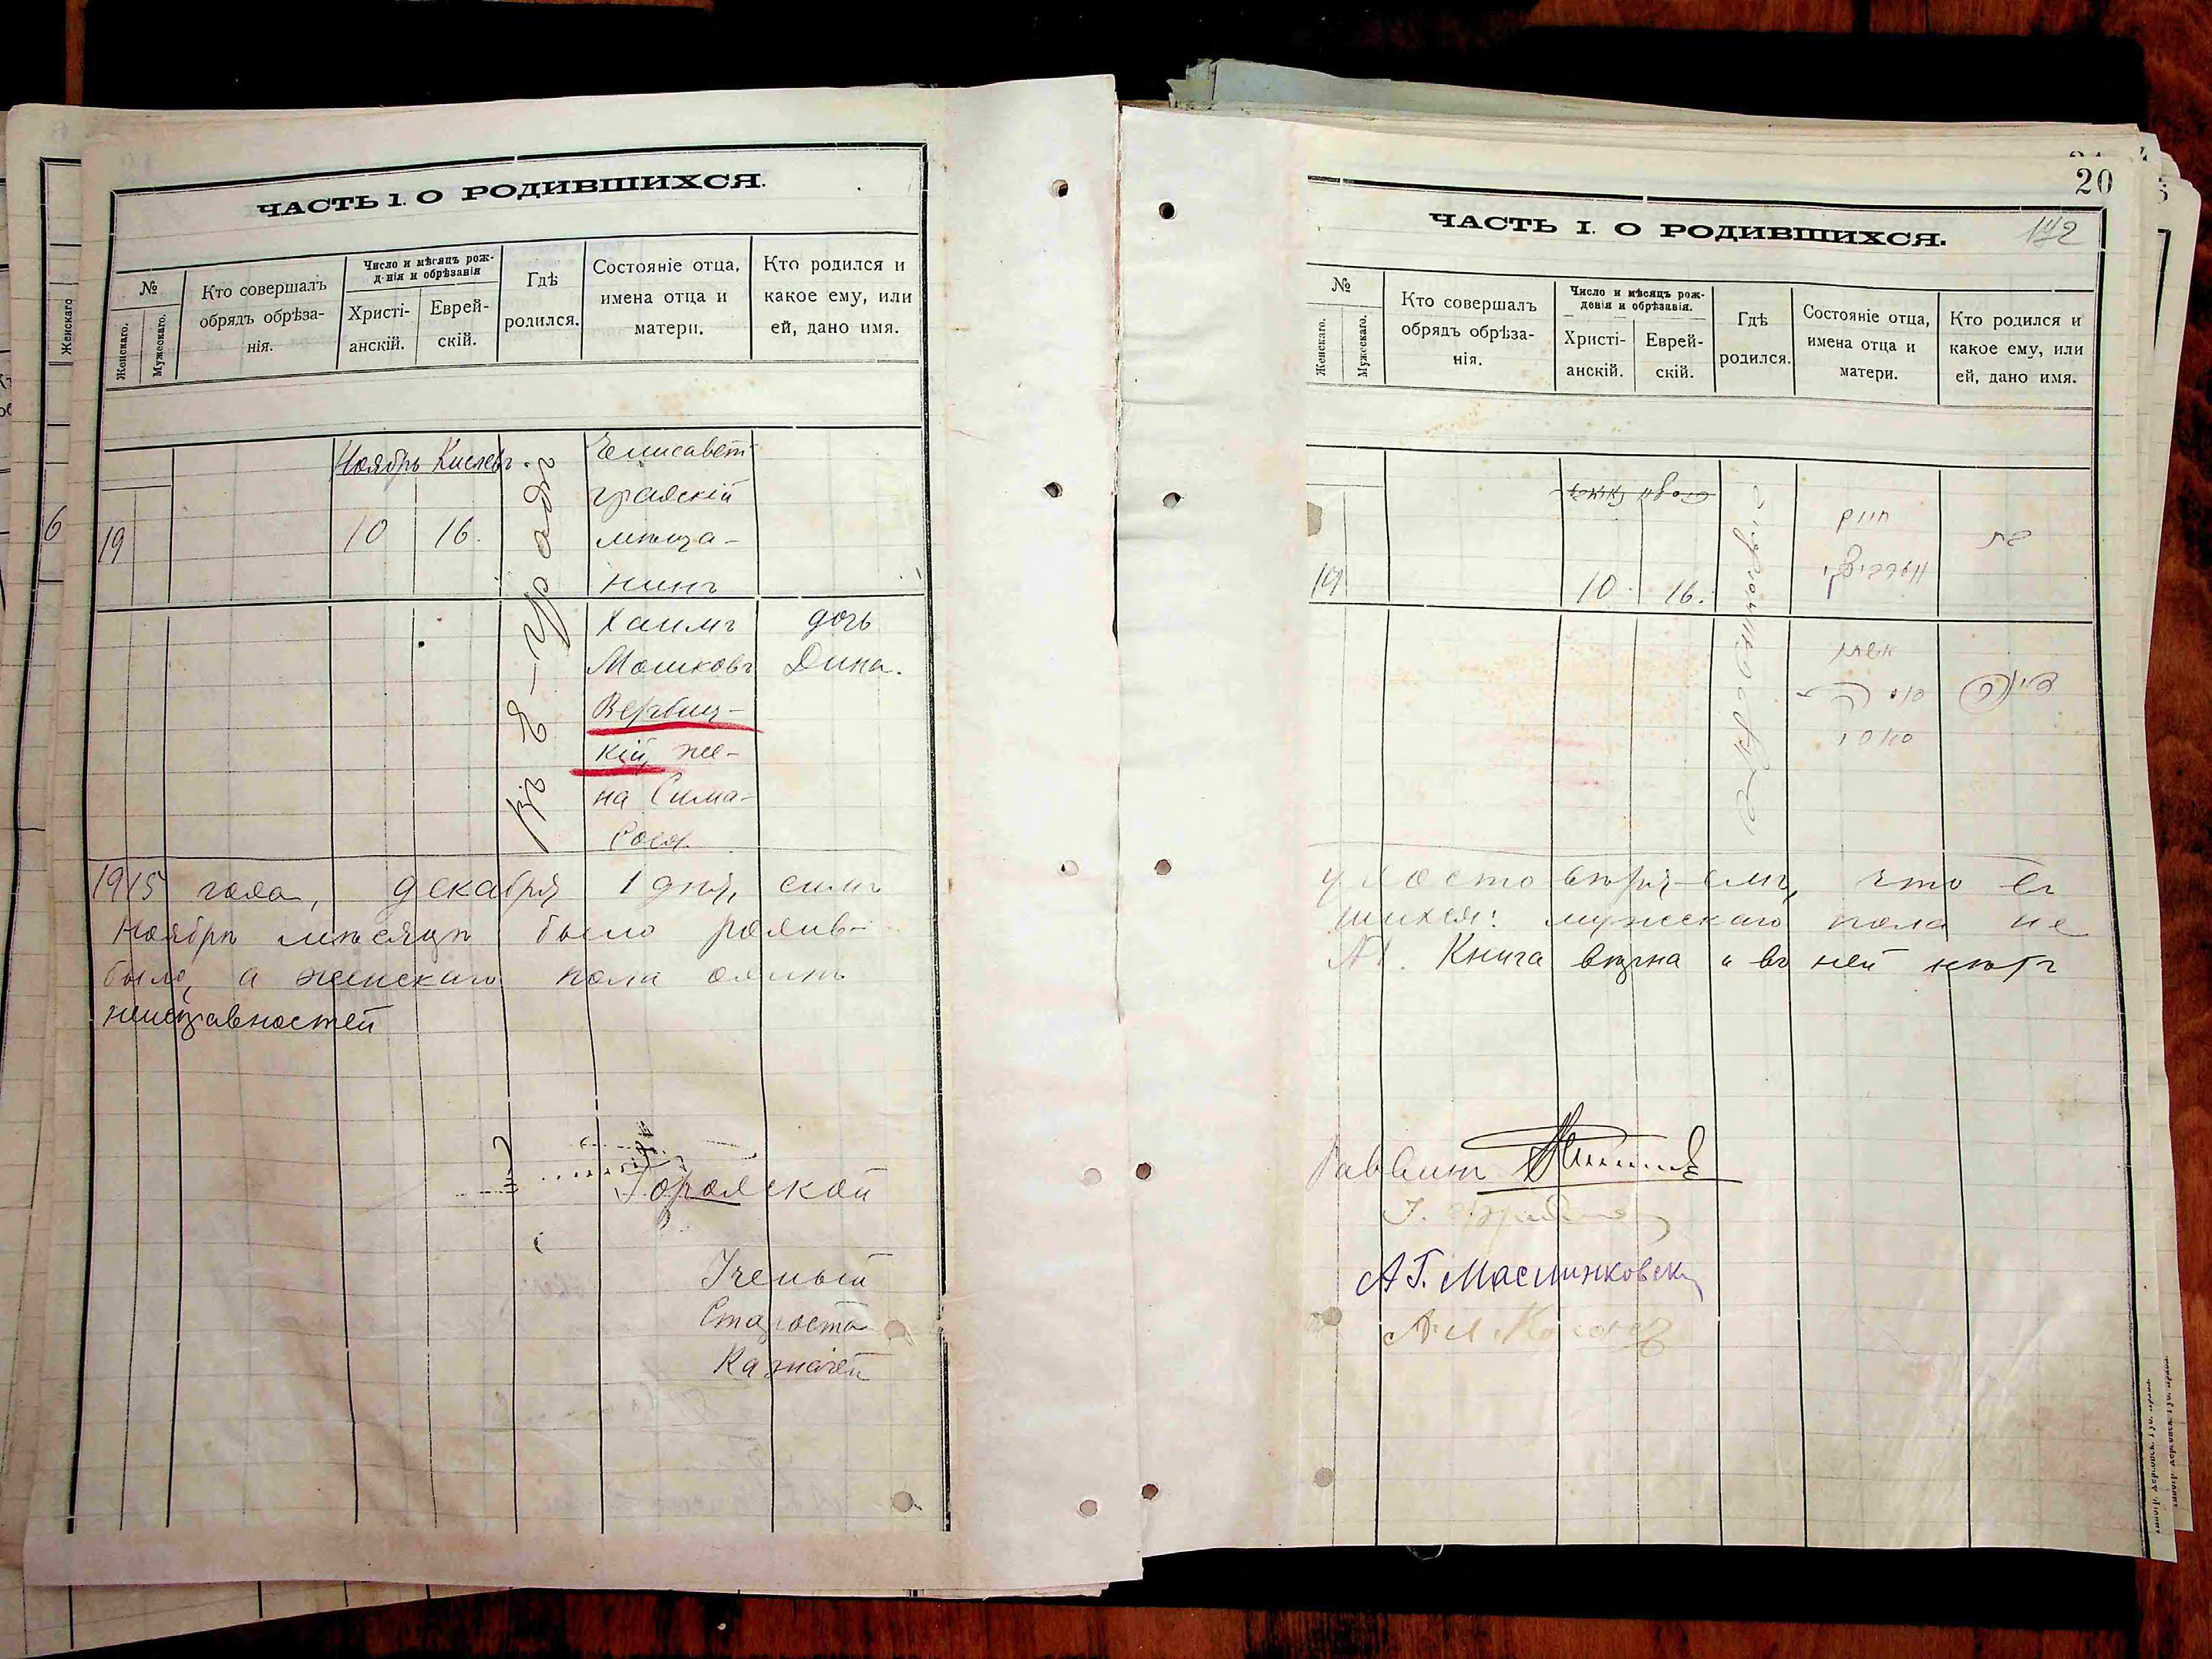 ЧАСТЬ 1. О РОДИВШИХСЯ.
№
Женскаго.
Мужескаго.
Кто совершалъ
обрядъ обрѣза-
нія.
Число и мѣсяцъ рож-
денія и обрѣзанія
Христі-
анскій.
Еврей-
скій.
Гдѣ
родился.
Состояніе отца,
имена отца и
матери.
Кто родился и
какое ему, или
ей, дано имя.
Ноябрь Кислевъ
19
10
16.
Въ Е-градѣ
Елисавет-
градскій
мѣща-
нинъ
Хаимъ
Мошковъ
Вербиц-
кій, же-
на Сима-
Рося.
дочь
Дина.
1915 года, декабря 1 дня, симъ
Ноябрѣ мѣсяцѣ было родив-
было, а женскаго пола одинъ
неисправностей
Городской
Ученый
Староста
Казначей
Женскаго
6
20
142
ЧАСТЬ I. О РОДИВШИХСЯ.
№
Женскаго.
Мужескаго.
Кто совершалъ
обрядъ обрѣза-
нія.
Число и мѣсяцъ рож-
денія и обрѣзанія.
Христі-
анскій.
Еврей-
скій.
Гдѣ
родился.
Состояніе отца,
имена отца и
матери.
Кто родился и
какое ему, или
ей, дано имя.
19
10.
16.
חיים
בת
удостовѣряемъ, что въ
шихся: мужескаго пола не
№1. Книга вѣрна и въ ней нѣтъ
Раввинъ
А Г. Маслинковск